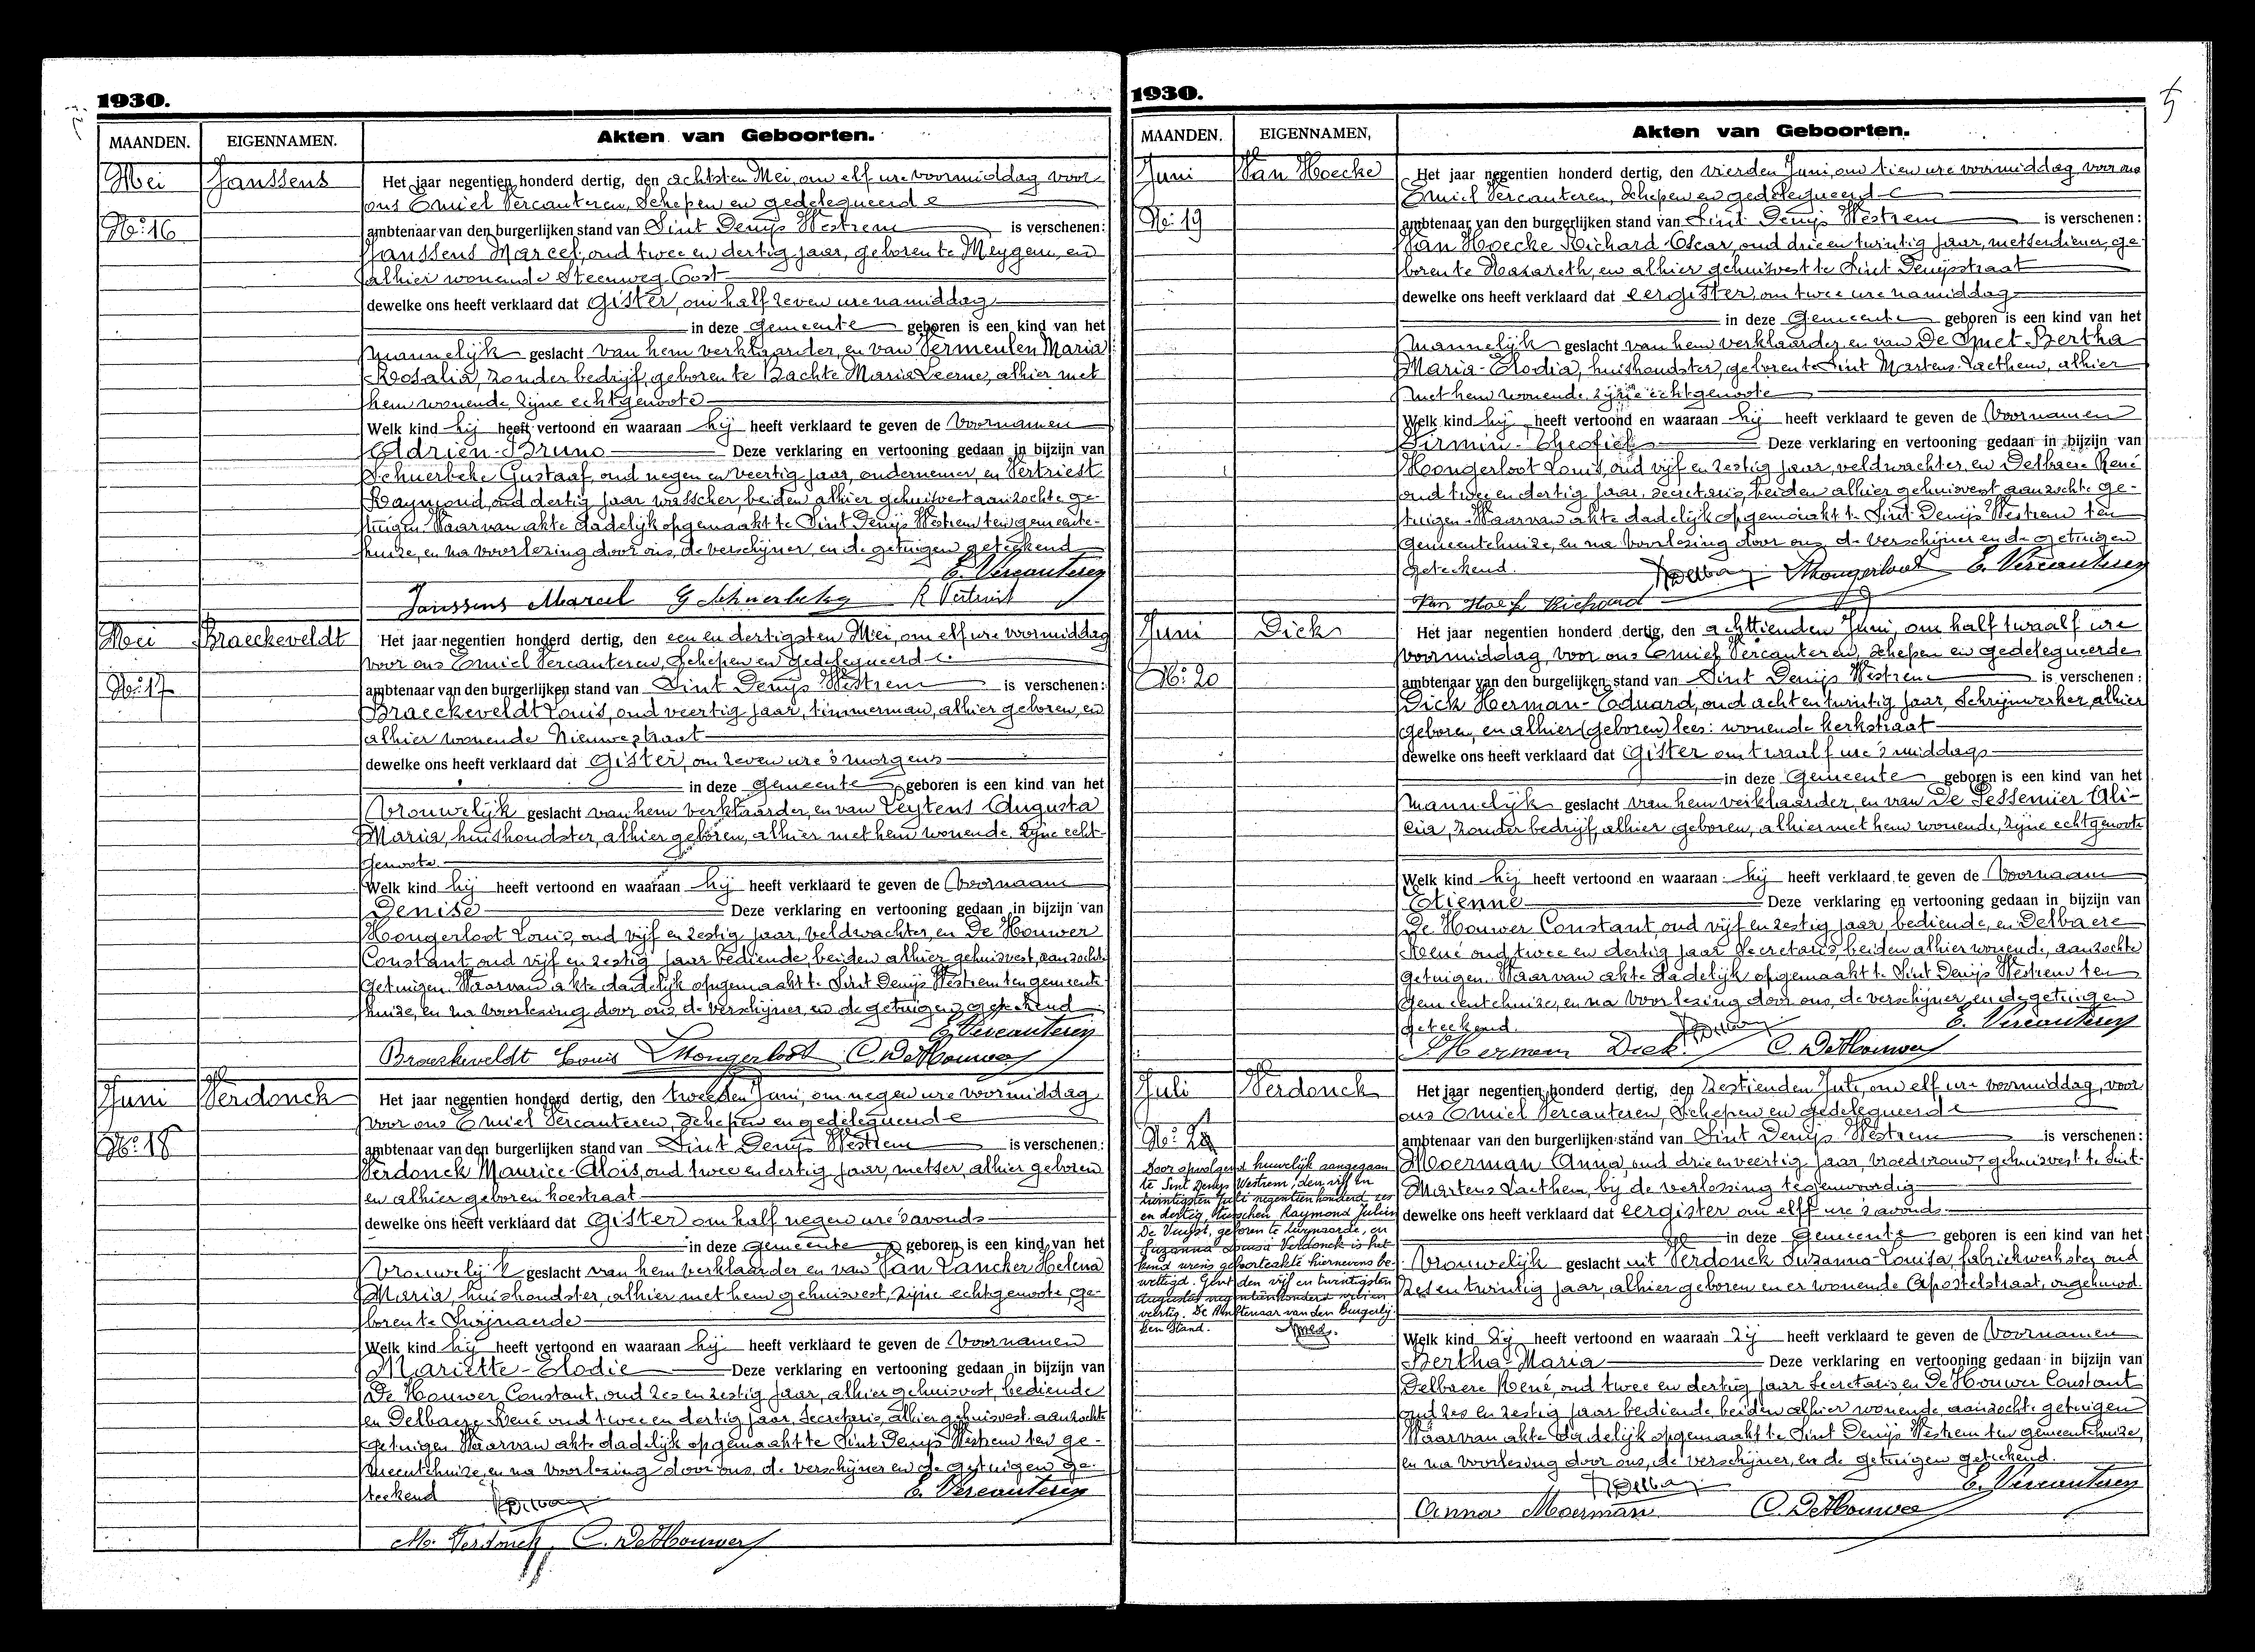 1930.
MAANDEN.
EIGENNAMEN.
Akten van Geboorten.
Mei
Janssens
No: 16
Het jaar negentien honderd dertig, den achtsten Mei, om elf ure voormiddag voor
ons Emiel Vercauteren, Schepen en gedelegueerde
ambtenaar van den burgerlijken stand van Sint Denijs Westrem is verschenen:
Janssens Marcel, oud twee en dertig jaar, geboren te Meygem, en
alhier wonende Steenweg Oost
dewelke ons heeft verklaard dat gister, om half zeven ure namiddag
in deze gemeente geboren is een kind van het
mannelijk geslacht van hem verklaarder, en van Vermeulen Maria
Rosalia, zonder bedrijf, geboren te Bachte Maria Leerne, alhier met
hem wonende zijne echtgenoote
Welk kind hij heeft vertoond en waaraan hij heeft verklaard te geven de Voornamen
Adrien-Bruno Deze verklaring en vertooning gedaan in bijzijn van
Schuerbeke Gustaaf, oud negen en veertig jaar, ondernemer, en Vertriest
Raymond, oud dertig jaar wasscher, beiden alhier gehuisvest aanzochte ge-
tuigen. Waarvan akte dadelijk opgemaakt te Sint Denijs Westrem ten gemeente-
huize, en na voorlezing door ons, de verschijner, en de getuigen geteekend
E. Vercauteren
Janssens Marcel G Schuerbeke R Vertriest
Mei
Braeckeveldt
No: 17
Het jaar negentien honderd dertig, den een en dertigsten Mei, om elf ure voormiddag
voor ons Emiel Vercauteren, Schepen en gedelegueerde
ambtenaar van den burgerlijken stand van Sint Denijs Westrem is verschenen:
Braeckeveldt Louis, oud veertig jaar, timmerman, alhier geboren, en
alhier wonende Nieuwestraat
dewelke ons heeft verklaard dat Gister, om zeven ure 's morgens
in deze gemeente geboren is een kind van het
Vrouwelijk geslacht van hem verklaarder, en van Leytens Augusta
Maria, huishoudster, alhier geboren, alhier met hem wonende zijne echt-
genoote
Welk kind hij heeft vertoond en waaraan hij heeft verklaard te geven de Voornaam
Denise Deze verklaring en vertooning gedaan in bijzijn van
Hongerloot Louis, oud vijf en zestig jaar, veldwachter, en De Houwer
Constant oud vijf en zestig jaar bediende, beiden alhier gehuisvest, aanzochte
Getuigen. Waarvan akte dadelijk opgemaakt te Sint Denijs Westrem ten gemeente-
huize, en na voorlezing door ons de verschijner, en de getuigen geteekend
E. Vercauteren
Braeckeveldt Louis LHongerloot C. DeHouwer
Juni
Verdonck
No: 18
Het jaar negentien honderd dertig, den tweeden Juni, om negen ure voormiddag
voor ons Emiel Vercauteren, Schepen en gedelegueerde
ambtenaar van den burgerlijken stand van Sint Denijs Westrem is verschenen:
Verdonck Maurice-Aloïs, oud twee en dertig jaar, metser, alhier geboren
en alhier geboren koestraat
dewelke ons heeft verklaard dat Gister om half negen ure 's avonds
in deze gemeente geboren is een kind van het
Vrouwelijk geslacht van hem verklaarder en van Van Lancker Helena
Maria, huishoudster, alhier met hem gehuisvest, zijne echtgenoote, ge-
boren te Swijnaerde
Welk kind hij heeft vertoond en waaraan hij heeft verklaard te geven de Voornamen
Mariette-Elodie Deze verklaring en vertooning gedaan in bijzijn van
De Houwer Constant, oud zes en zestig jaar, alhier gehuisvest, bediende
en Delbaere René oud twee en dertig jaar, Secretaris, alhier gehuisvest aanzochte
getuigen. Waarvan akte dadelijk opgemaakt te Sint Denijs Westrem ten ge-
meentehuize, en na voorlezing door ons, de verschijner en de getuigen ge-
teekend
E. Vercauteren
M. Verdonck C. DeHouwer
1930.
MAANDEN.
EIGENNAMEN,
Akten van Geboorten.
Juni
Van Hoecke
No: 19
Het jaar negentien honderd dertig, den vierden Juni, om tien ure voormiddag, voor ons
Emiel Vercauteren, Schepen en gedelegueerde
ambtenaar van den burgerlijken stand van Sint Denijs Westrem is verschenen:
Van Hoecke Richard-Oscar, oud drie en twintig jaar, metserdiener, ge-
boren te Nazareth, en alhier gehuisvest te Sint Denijsstraat
dewelke ons heeft verklaard dat eergister, om twee ure namiddag
in deze Gemeente geboren is een kind van het
mannelijk geslacht van hem verklaarder, en van De Smet Bertha
Maria-Elodia, huishoudster, geboren te Sint Martens-Laethem, alhier
met hem wonende zijne echtgenoote
Welk kind hij heeft vertoond en waaraan hij heeft verklaard te geven de Voornamen
Firmin-Theofiel Deze verklaring en vertooning gedaan in bijzijn van
Hoongerloot Louis, oud vijf en zestig jaar, veldwachter, en Delbaere René
oud twee en dertig jaar, secretaris, beiden alhier gehuisvest aanzochte ge-
tuigen. Waarvan akte dadelijk opgemaakt te Sint Denijs Westrem ten
Gemeentehuize, en na voorlezing door ons de verschijner en de getuigen
geteekend.
RDelbaere LHongerloot E. Vercauteren
Van Hoecke Richard
Juni
Dick
No: 20
Het jaar negentien honderd dertig, den achttienden Juni, om half twaalf ure
voormiddag, voor ons Emiel Vercauteren, Schepen en gedelegueerde
ambtenaar van den burgelijken stand van Sint Denijs Westrem is verschenen:
Dick Herman-Eduard, oud acht en twintig jaar, Schrijnwerker, alhier
geboren, en alhier (geboren) lees: wonende kerkstraat
dewelke ons heeft verklaard dat Gister om twaalf ure 's middags
in deze Gemeente geboren is een kind van het
mannelijk geslacht van hem verklaarder, en van De Pessemier Ali-
cia, zonder bedrijf, alhier geboren, alhier met hem wonende, zijne echtgenoote
Welk kind hij heeft vertoond en waaraan hij heeft verklaard te geven de Voornaam
Etienne Deze verklaring en vertooning gedaan in bijzijn van
De Houwer Constant, oud vijf en zestig jaar, bediende, en Delbaere
René oud twee en dertig jaar Secretaris, beiden alhier wonende, aanzochte
Getuigen. Waarvan akte dadelijk opgemaakt te Sint Denijs Westrem ten
Gemeentehuize, en na voorlezing door ons, de verschijner, en de getuigen
geteekend.
E. Vercauteren
Herman Dick C. DeHouwer
Juli
Verdonck
No: 21
Het jaar negentien honderd dertig, den zestienden Juli, om elf ure voormiddag, voor
ons Emiel Vercauteren, Schepen en gedelegueerde
ambtenaar van den burgerlijken stand van Sint Denijs Westrem is verschenen:
Moerman Anna, oud drie en veertig jaar, vroedvrouw, gehuisvest te Sint-
Martens Laethem, bij de verlossing tegenwoordig
dewelke ons heeft verklaard dat eergister om elff ure 's avonds
in deze Gemeente geboren is een kind van het
Vrouwelijk geslacht uit Verdonck Suzanna-Louisa, fabriekwerkster, oud
zes en twintig jaar, alhier geboren en er wonende Apostelstraat, ongehuwd.
Welk kind Zij heeft vertoond en waaraan Zij heeft verklaard te geven de Voornamen
Bertha-Maria Deze verklaring en vertooning gedaan in bijzijn van
Delbaere René, oud twee en dertig jaar Secretaris, en De Houwer Constant
oud zes en zestig jaar bediende, beiden alhier wonende, aanzochte getuigen
Waarvan akte dadelijk opgemaakt te Sint Denijs Westrem ten gemeentehuize,
en na voorlezing door ons, de verschijner, en de getuigen geteekend.
RDelbaere E. Vercauteren
Anna Moerman C. DeHouwer
Door opvolgend huwelijk aangegaan
te Sint Denijs Westrem, den vijf en
twintigsten Juli negentienhonderd zes
en dertig tusschen Raymond Julien
De Vuyst, geboren te Zwijnaarde, en
Suzanna Louisa Verdonck is het
kind wiens geboorteakte hiernevens be-
wettigd. Gent den vijf en twintigsten
Augustus negentienhonderd
veertig. De Ambtenaar van den Burgerlij-
ken Stand.